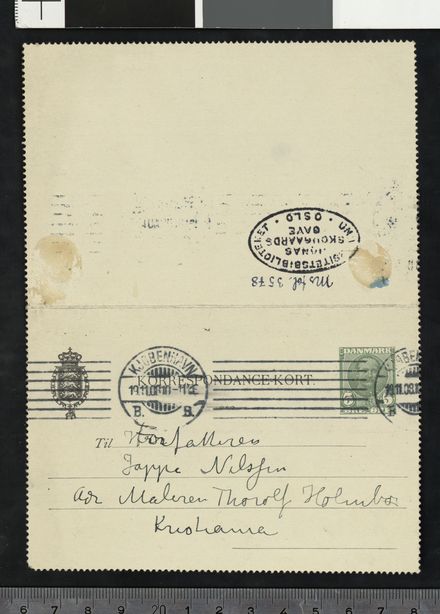 UNIVERSITETSBIBLIOTEKET · OSLO ·
JONAS
SKOUGAARDS
GAVE
Ms fol. 3578
DANMARK
KJØBENHAVN
19.11.09.
B. B.
KORRESPONDANCE-KORT.
5 ØRE 5
Til Forfatteren
Jappe Nilssen
Adr Maleren Thorolf Holmboe
Kristiania